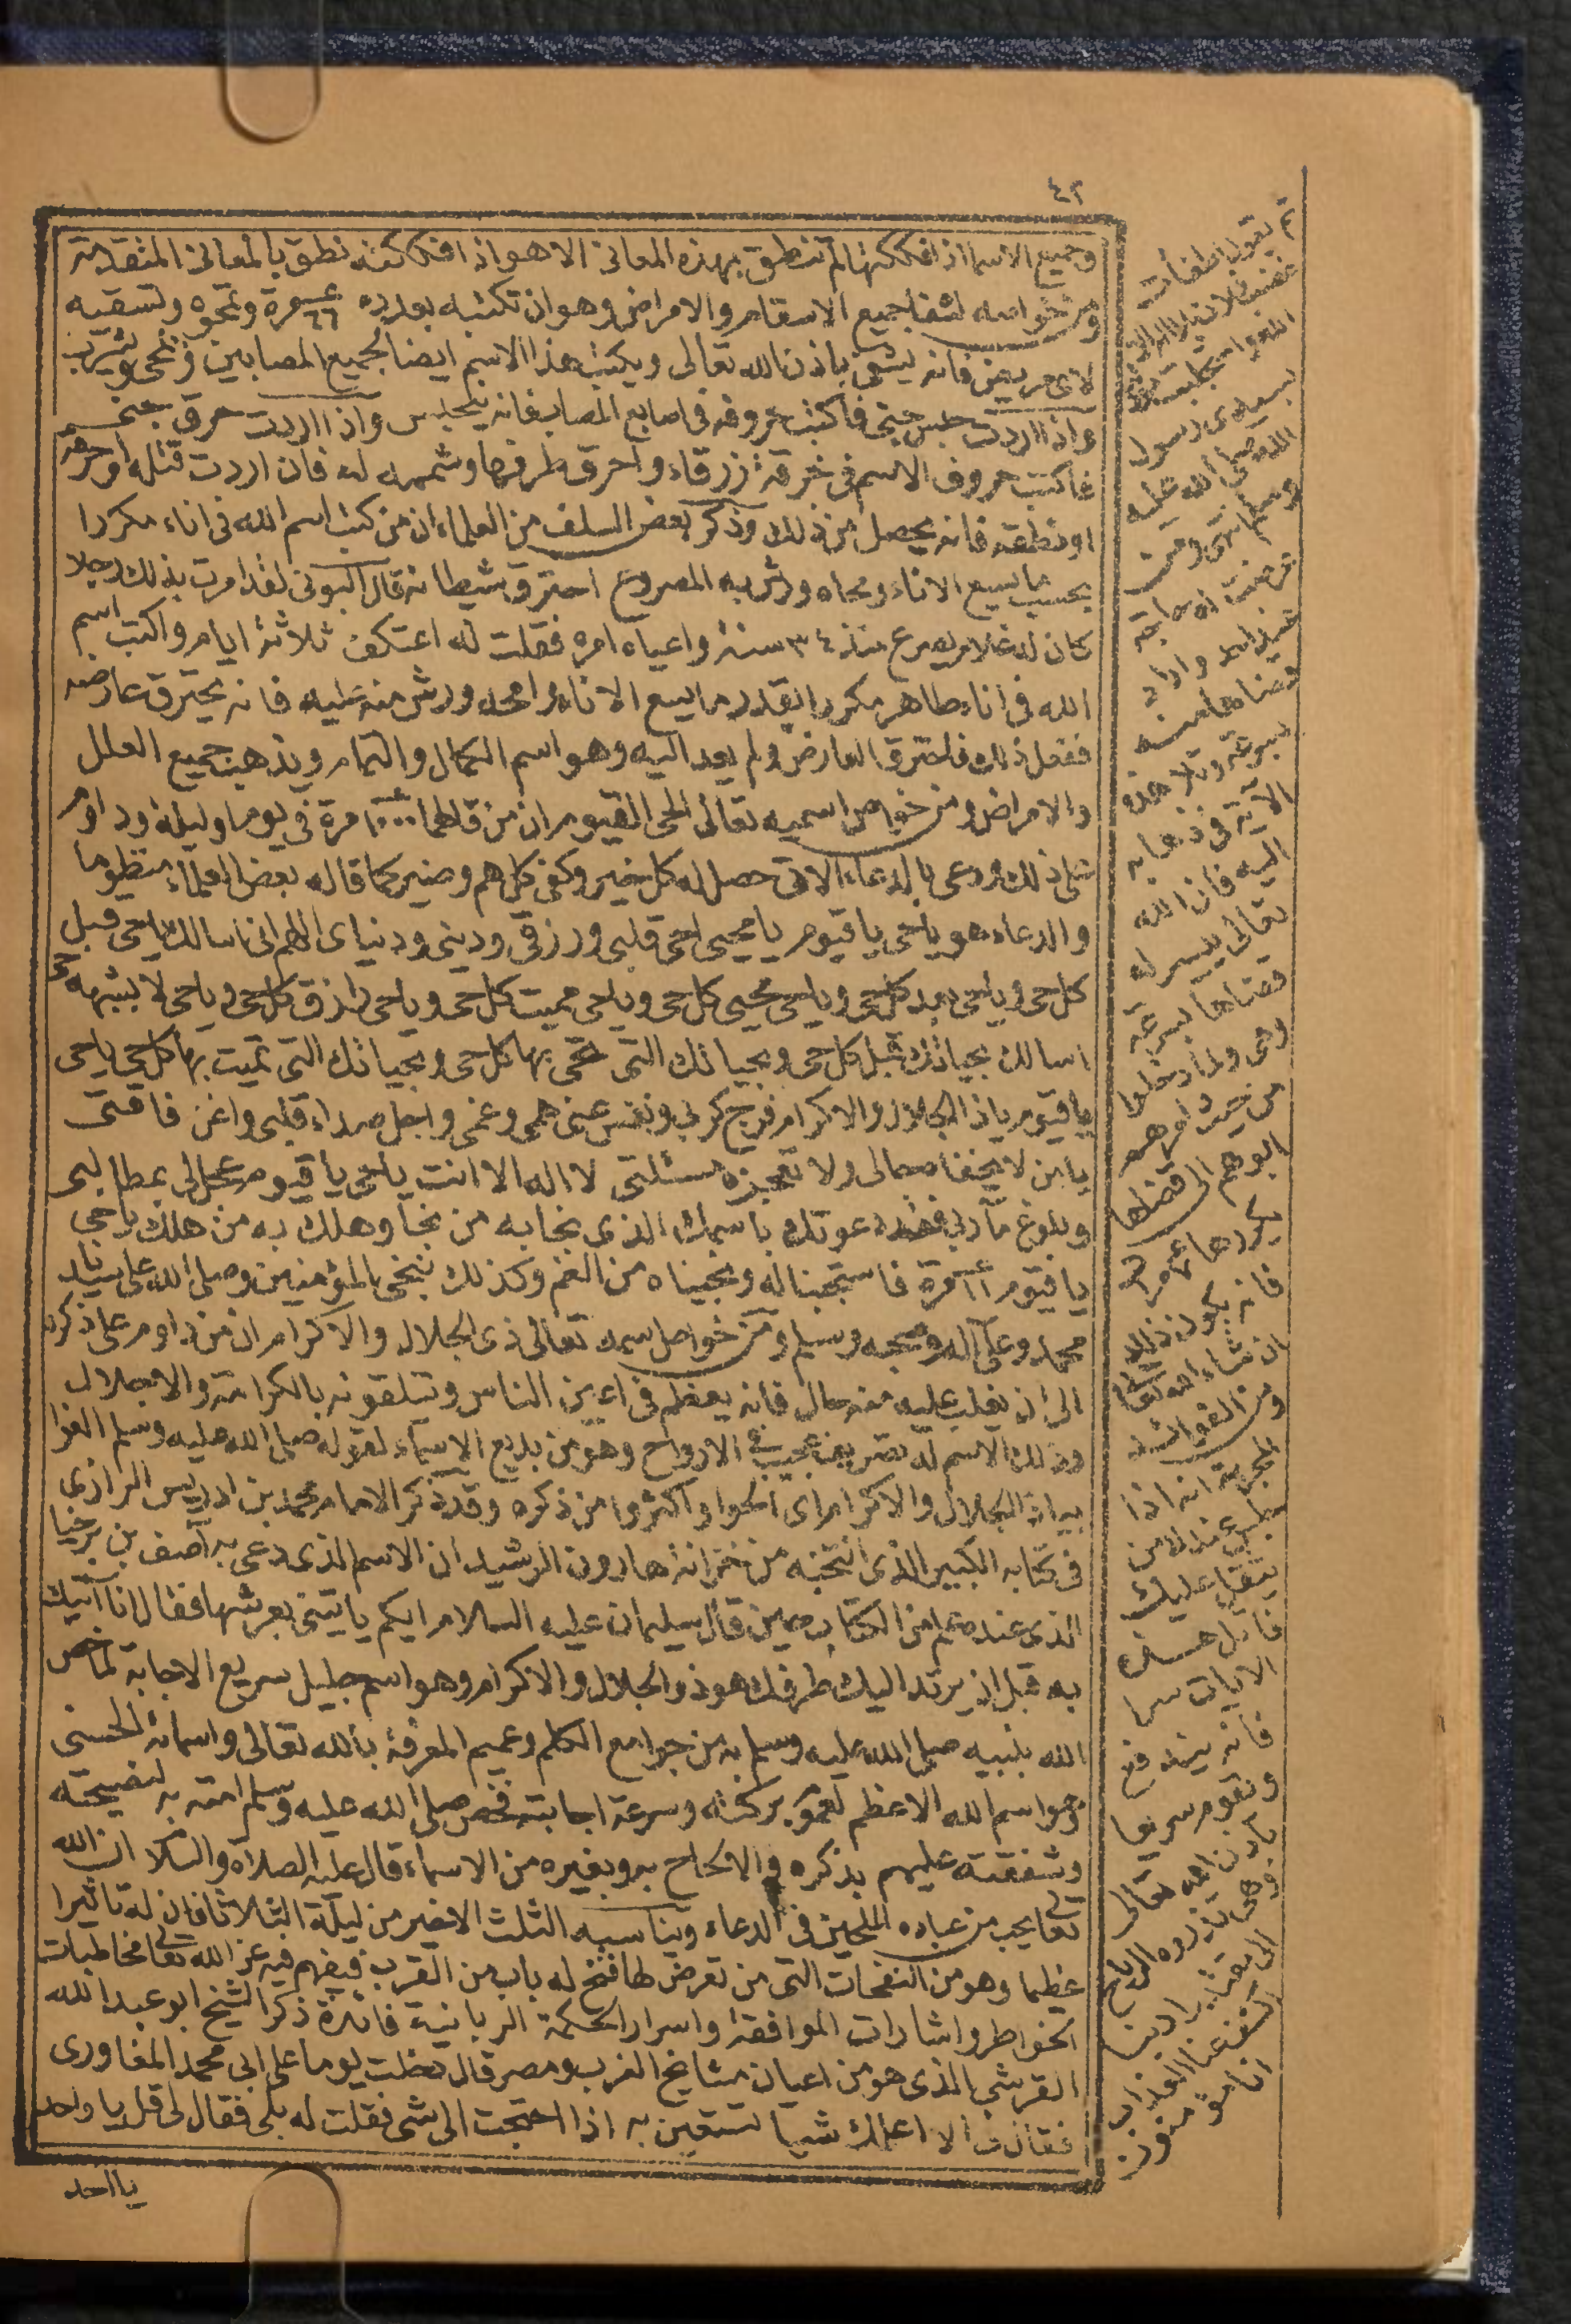 ٤٢
وجميع الاسما اذا فككتها لم تنطق بهذه المعانى الا هو اذا فككته نطق بالمعانى المتقدمة
ومن خواصه لشفا جميع الاسقام والامراض وهو ان تكتبه بعدده ٦٦ مرة وتمحوه وتسقيه
لاى مريض فانه يشفى باذن الله تعالى ويكتب هذا الاسم ايضا لجميع المصابين ويمحى ويشرب
واذا اردت حبس جنى فاكتب حروفه فى اصابع المصاب فانه ينحبس واذا اردت حرق جنى
فاكتب حروف الاسم فى خرقة زرقاء واحرق طرفها وشممه له فان اردت قتله او حرقه
او نطقه فانه يحصل من ذلك وذكر بعض السلف من العلماء ان من كتب اسم الله فى اناء مكررا
بحسب ما يسع الاناء ومحاه ورش به المصروع احترق شيطانه قال البونى لقد امرت بذلك رجلا
كان له غلام يصرع منذ ٣٤ سنة واعياه امره فقلت له اعتكف ثلاثة ايام واكتب اسم
الله فى اناء طاهر مكررا بقدر ما يسع الاناء وامحه ورش منه عليه فانه يحترق عارضه
ففعل ذلك فاحترق العارض ولم يعد اليه وهو اسم الكمال والتمام ويذهب جميع العلل
والامراض ومن خواص اسميه تعالى الحى القيوم ان من قالهما مرة فى يوم وليلة وداوم
على ذلك ودعى بالدعاء الاتى حصل له كل خير وكفى كل هم وضير كما قاله بعض العلماء منظوما
والدعاء هو ياحى ياقيوم يا محيى احى قلبى ورزقى ودينى ودنياى اللهم انى اسالك ياحى قبل
كل حى وياحى بعد كل حى وياحى محيى كل حى وياحى مميت كل حى وياحى رازق كل حى وياحى لا يشبهه حى
اسالك بحياتك قبل كل حى وبحياتك التى تحى بها كل حى وبحياتك التى تميت بها كل حى ياحى
ياقيوم ياذا الجلال والاكرام فرج كربى ونفس عنى همى وغمى واجل صداء قلبى واغن فاقتى
يامن لا يخفاه حالى ولا تعجزه مسئلتى لا اله الا انت ياحى ياقيوم عجل لى بمطالبى
وبلوغ مآربى فقد دعوتك باسمك الذى نجا به من نجا وهلك به من هلك ياحى
ياقيوم مرة فاستجبنا له ونجيناه من الغم وكذلك ننجى المؤمنين وصلى الله على سيدنا
محمد وعلى آله وصحبه وسلم ومن خواص اسمه تعالى ذى الجلال والاكرام ان من داوم على ذكره
الى ان يغلب عليه منه حال فانه يعظم فى اعين الناس ويتلقونه بالكرامة والاجلال
وذلك الاسم له تصريف عجيب فى الارواح وهو من بديع الاسماء لقوله صلى الله عليه وسلم الظوا
بياذا الجلال والاكرام اى الحوا واكثروا من ذكره وقد ذكر الامام محمد بن ادريس الرازى
فى كتابه الكبير الذى انتخبه من خزانة هارون الرشيد ان الاسم الذى دعى به آصف بن برخيا
الذى عنده علم من الكتاب حين قال سليمان عليه السلام ايكم ياتينى بعرشها فقال انا آتيك
به قبل ان يرتد اليك طرفك هو ذو الجلال والاكرام وهو اسم جليل سريع الاجابة لما خص
الله بنبيه صلى الله عليه وسلم به من جوامع الكلم وعميم المعرفة بالله تعالى واسمائه الحسنى
وهو اسم الله الاعظم لعموم بركته وسرعة اجابته فخص صلى الله عليه وسلم امته به لنصيحته
وشفقته عليهم بذكره والالحاح به وبغيره من الاسماء قال عليه الصلاة والسلام ان الله
تعالى يحب من عباده الملحين فى الدعاء ويناسبه الثلث الاخير من ليلة الثلاثا فان له تاثيرا
عظيما وهو من النفحات التى من تعرض لها فتح له باب من القرب فيفهم فيه عن الله تعالى مخاطبات
الخواطر واشارات الموافقة واسرار الحكمة الربانية فائدة ذكر الشيخ ابو عبد الله
القرشى الذى هو من اعيان مشايخ الغرب ومصر قال دخلت يوما على ابى محمد المغاورى
فقال لى الا اعلمك شيا تستعين به اذا احتجت الى شى فقلت له بلى فقال لى قل يا واحد
يا احد
ثم يقول اطفأت
غضب فلان بلا اله الا
الله واستجلبت
بسيدى رسول
الله صلى الله عليه
وسلم ومن
عرضت له حاجة
عند احد واراد
قضاها منه
بسرعة وتلا هذه
الآية فى ذهابه
اليه فان الله
تعالى ييسر له
قضاها بسرعة
وهى ولما دخلوا
من حيث امرهم
ابوهم الى قضاها
يكررها مرة
فانه يكون ذلك
ان شاء الله تعالى
ومن الفوائد
المجربة انه اذا
جلس عندك من
يثقل عليك
فاتل هذه
الايات سرا
فانه ينزعج
ويقوم سريعا
باذن الله تعالى
وهى تذروه الرياح
الى مقتدرا ربنا
اكشف عنا العذاب
انا مؤمنون